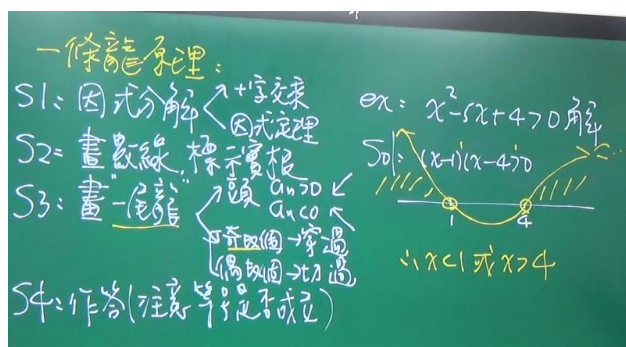 一條龍原理：
S1：因式分解
十字交乘
因式定理
S2：畫數線，標示實根
S3：畫"一尾龍"
頭 an>0 ↙
an<0 ↖
奇數個→穿過
偶數個→切過
S4：作答(注意等號是否成立)
ex： x²-5x+4>0 解
Sol： (x-1)(x-4)>0
1 4
∴x<1 或 x>4